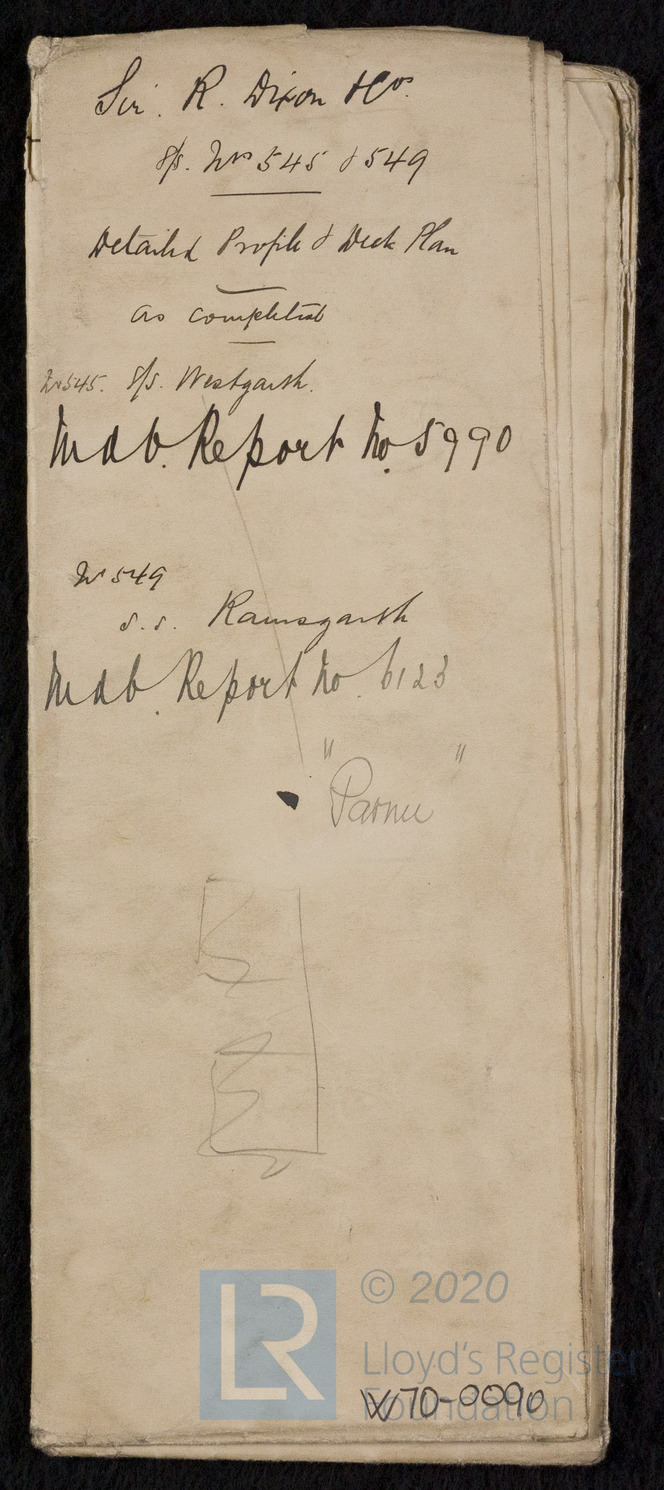 Sir. R. Dixon & Co.
S/S. Nos 545 & 549
Detailed Profile & Deck Plan
as completed
No 545. S/S. Westgarth.
Mdb. Report No. 5990
No 549
S.S. Ramsgarth
Mdb. Report No. 6123
LR
© 2020
Lloyd's Register
Foundation
W70-0090